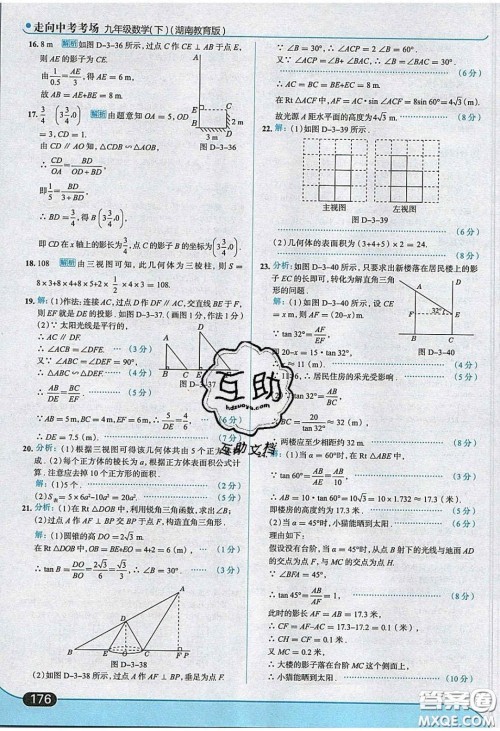 走向中考考场 九年级数学(下)(湖南教育版)
16. 8 m 解析 如图 D-3-36, 过点 C 作 CE ⊥ AB 于点 E,
则 AE 的影子为 CE.
由 1/0.5 = AE/3, 得 AE = 6 m.
故 AB = AE + BE = 8 m.
17. 3/4 (3/4, 0) 解析 由题意知 OA = 5, OD
= 3, OC = 1.
由 CD ∥ AO 知, △CDB ∽ △AOB,
∴ CD/OA = BD/(OD+BD),
即 1/5 = BD/(3+BD),
∴ BD = 3/4, 得 B(3 3/4, 0).
即 CD 在 x 轴上的影长为 3/4, 点 C 的影子 B 的坐标为 (3 3/4, 0).
图 D-3-36
2 m
18. 108 解析 由三视图可知, 此几何体为三棱柱, 则 S =
8×3+8×4+8×5+2×1/2×4×3=108.
19. 解:(1)作法:连接 AC, 过点 D 作 DF ∥ AC, 交直线 BE 于点 F,
则 EF 就是 DE 的投影.(画图 1 分, 作法 1 分)
(2)∵ 太阳光线是平行的,
∴ AC ∥ DF.
∴ ∠ACB = ∠DFE. (3 分)
又∵ ∠ABC = ∠DEF = 90°,
∴ △ABC ∽ △DEF. (4 分)
∴ AB/DE = BC/EF. (5 分)
图 D-3-37
∵ AB = 5 m, BC = 4 m, EF = 6 m, ∴ 5/DE = 4/6. (6 分)
∴ DE = 7.5 (m). (7 分)
20. 分析:(1)根据三视图可得该几何体共由 5 个正方体组
成.(2)每个正方体的棱长为 a, 根据正方体表面积公式计
算. 注意应去掉 10 个面的面积.
解:(1)5 个. (2 分)
21. 分析:(1)在 Rt △DOB 中, 利用锐角三角函数, 求出∠B;
(2)过点 A 作 AF ⊥ BP 交 BP 于点 F, 构造直角三角形.
解:(1)圆锥的高 DO = 2√3 m.
在 Rt △DOB 中, OB = BE + EO = 4 + 2 = 6 (m), (1 分)
∴ tan B = DO/BO = 2√3/6 = √3/3, ∴ ∠B = 30°. (3 分)
图 D-3-38
(2)如图 D-3-38, 过点 A 作 AF ⊥ BP, 垂足为点 F.
176
∵ ∠B = 30°, ∴ ∠ACP = 2∠B = 60°.
(6 分)
∴ AC = BC = BE + EC = 8 m.
在 Rt △ACF 中, AF = AC·sin∠ACF = 8sin 60° = 4√3 (m).
故光源 A 距水平面的高度为 4√3 m. (8 分)
22. 解:(1)如图 D-3-39 所示.
主视图 左视图
图 D-3-39
(2)几何体的表面积为 (3+4+5)×2=24. (8 分)
23. 分析:(1)如图 D-3-40 所示, 只要求出新楼落在居民楼上的影
子 EC 的长即可, 转化为解直角三角形的问题.
32°
∵ tan 32° = AF/EF,
图 D-3-40
两楼应至少相距约 32 米. (8 分)
即楼房的高度约为 17.3 米. (2 分)
(2)当 α = 45°时, 小猫能晒到太阳. (3 分)
理由如下:
假设没有台阶, 当 α = 45°时, 从点 B 射下的光线与地面 AD
的交点为点 F, 与 MC 的交点为点 H.
∵ ∠BFA = 45°,
∴ tan 45° = AB/AF = 1. (8 分)
此时的影长 AF = AB = 17.3 米,
∴ CF = AF − AC = 17.3 − 17.2 = 0.1 (米).
∴ CH = CF = 0.1 米.
∴ 大楼的影子落在台阶 MC 这个侧面上.
∴ 小猫能晒到太阳. (10 分)
互助
hdzuowen.com
互助文档
答案圈
MXQE.COM